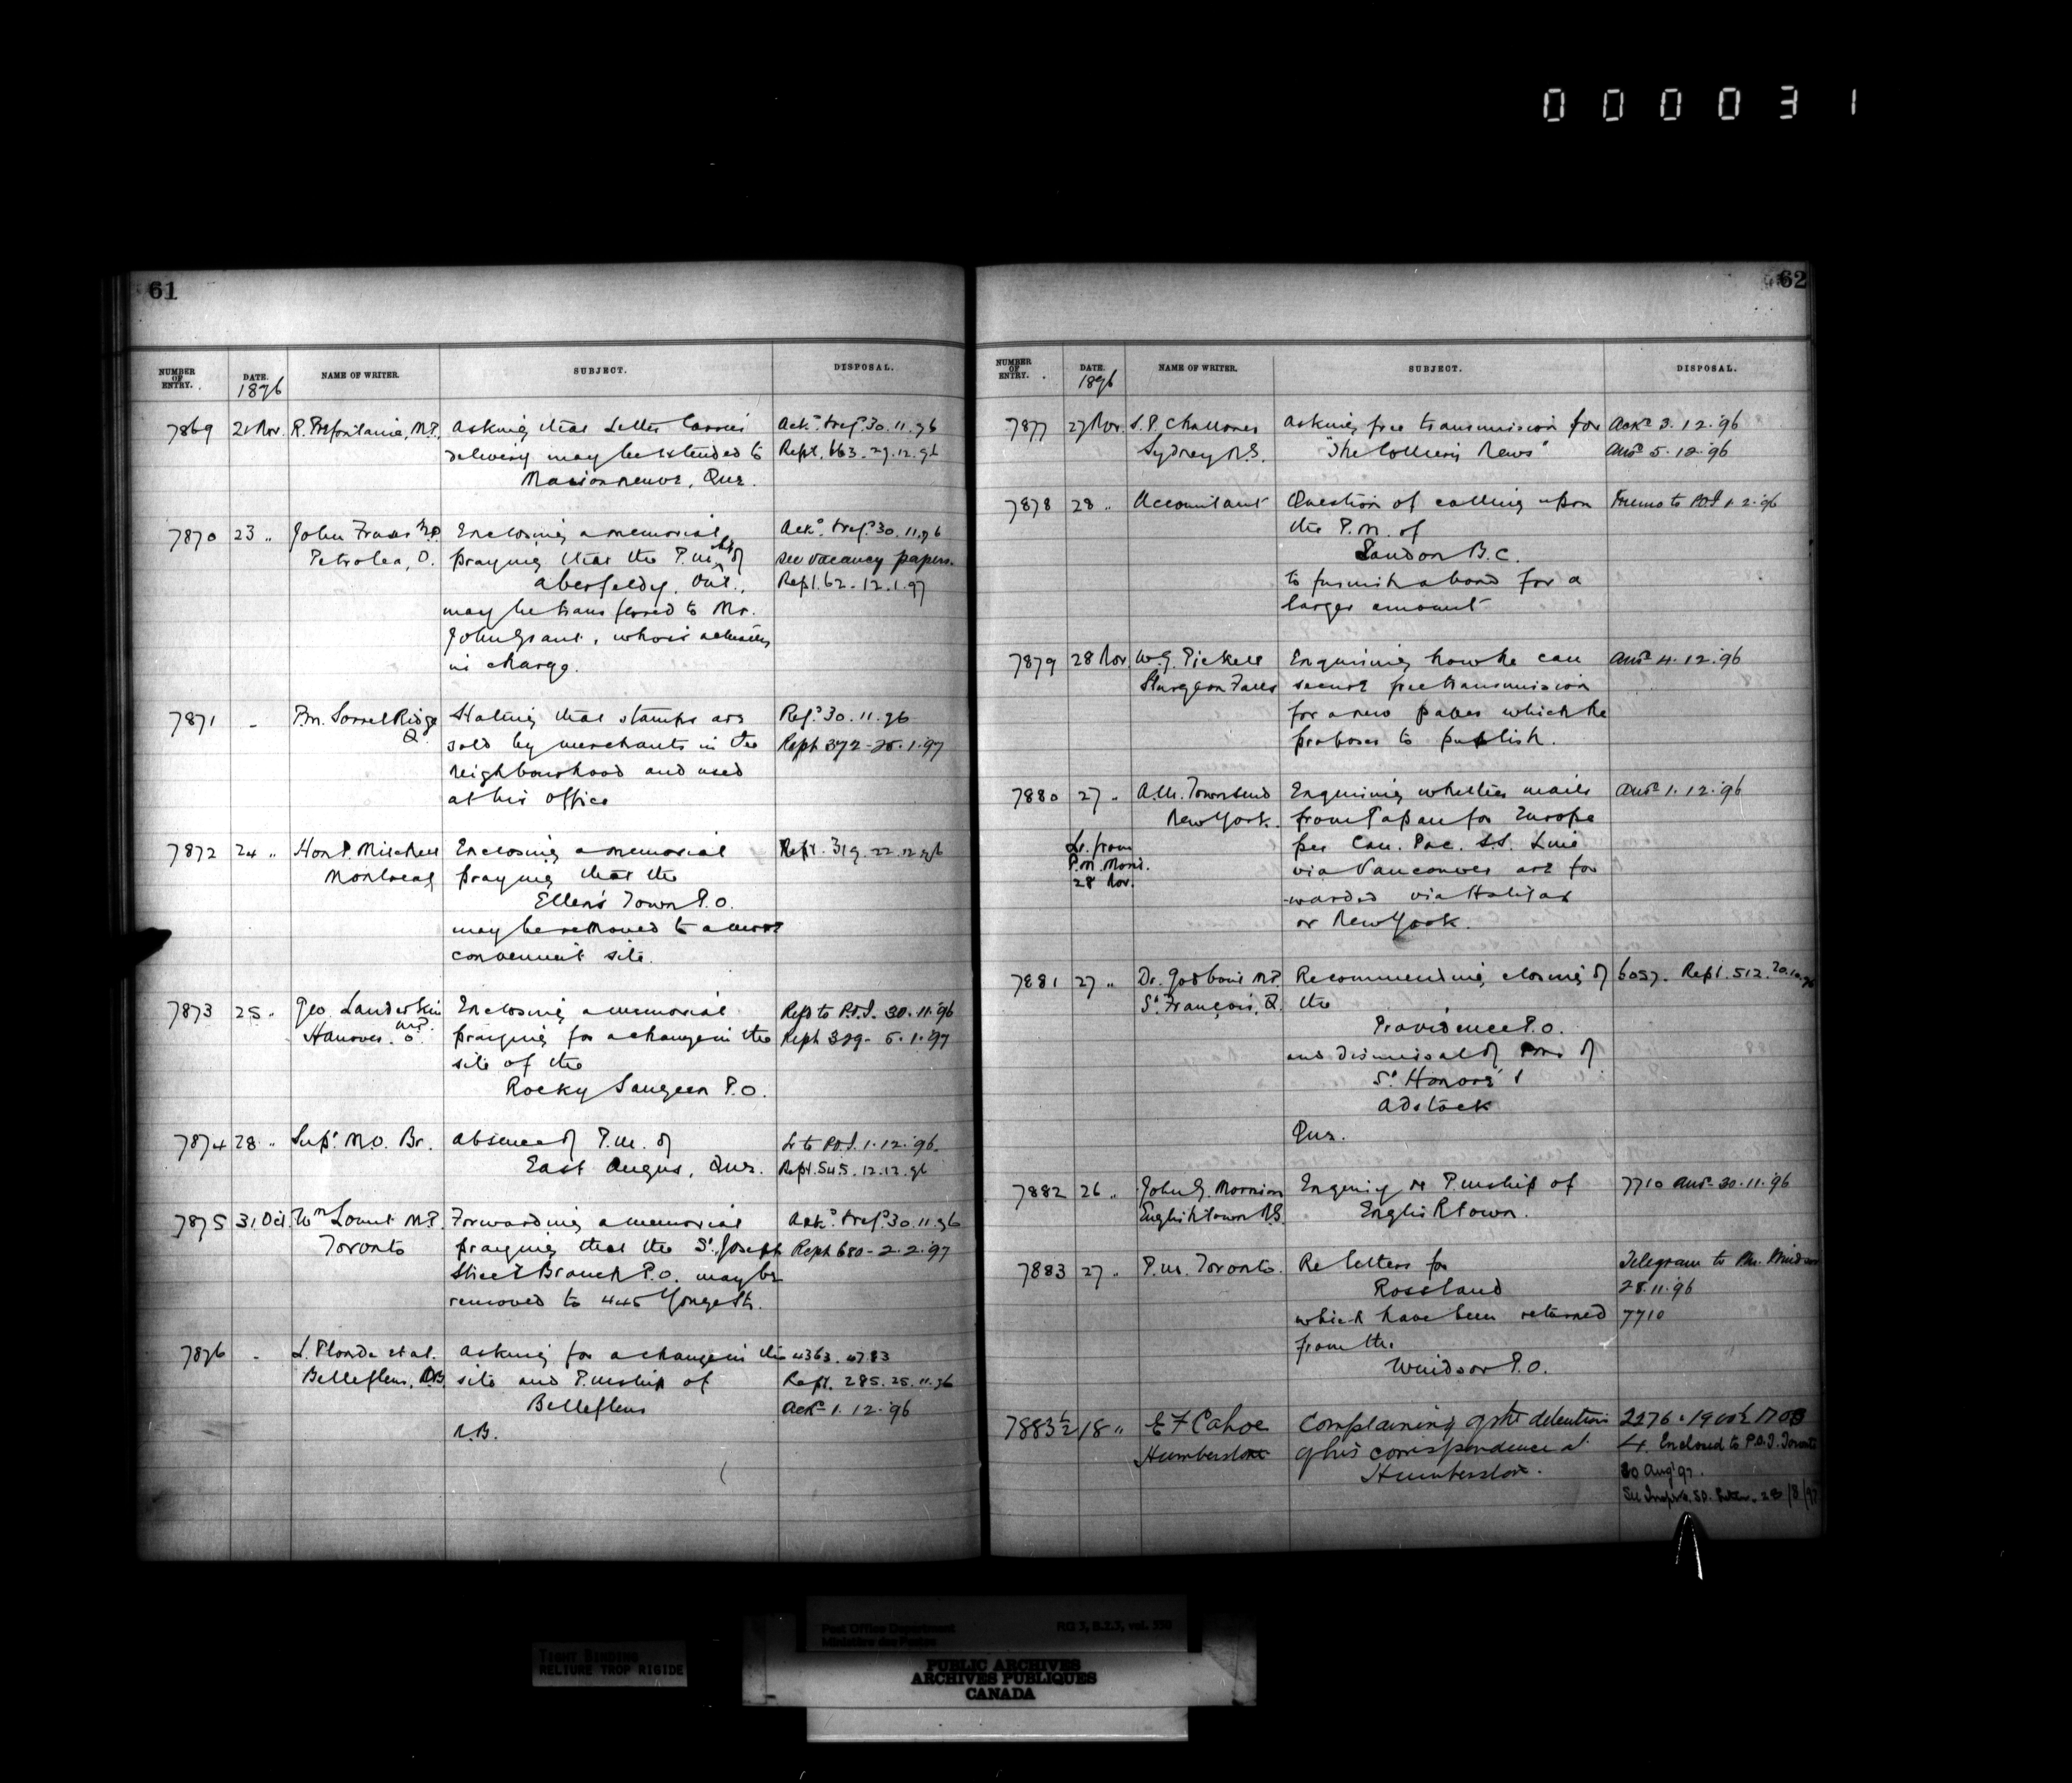 000031
61
NUMBER OF ENTRY. DATE. NAME OF WRITER. SUBJECT. DISPOSAL.
1896
7869 21 Nov. R. Prefontaine, M.P. Asking that Letter Carrier Ackd. & refd. 30.11.96
delivery may be extended to Rept. 663. 29.12.96
Maisonneuve, Que.
7870 23 " John Fraser M.P. Enclosing a memorial Ackd. & refd. 30.11.96
Petrolea, O. praying that the P.mship of see vacancy papers.
Aberfeldy, Ont., Rept. 62. 12.1.97
may be transferred to Mr.
John Grant, who is actually
in charge.
7871 " P.m. Sorrel Ridge Stating that stamps are Refd. 30.11.96
Q. sold by merchants in the Rept 372 - 25.1.97
neighbourhood and used
at his office
7872 24 " Hon P. Mitchell Enclosing a memorial Rept. 319. 22.12.96
Montreal praying that the
Ellen's Town P.O.
may be removed to a more
convenient site.
7873 25 " Geo. Landerkin Enclosing a memorial Refd to P.O.I. 30.11.96
M.P. Hanover. O. praying for a change in the Rept 329 - 5.1.97
site of the
Rocky Saugeen P.O.
7874 28 " Supt. M.O. Br. Absence of P.m. of Lr to P.O.I. 1.12.96.
East Angus, Que. Rept. 545. 12.12.96
7875 31 Oct. Wm Lount M.P. Forwarding a memorial Ackd. & refd. 30.11.96
Toronto praying that the St. Joseph Rept 680 - 2.2.97
Street Branch P.O. may be
removed to 445 Yonge St.
7876 " L. Plonde et al. Asking for a change in the 4363. 4783
Bellefleur, N.B. site and P.mship of Rept. 285. 25.11.96
Bellefleur Ackd 1.12.96
N.B.
62
NUMBER OF ENTRY. DATE. NAME OF WRITER. SUBJECT. DISPOSAL.
1896
7877 27 Nov. S.P. Challoner Asking free transmission for Ackd 3.12.96
Sydney N.S. "The Colliery News" Ansd 5.12.96
7878 28 " Accountant Question of calling upon Memo to P.O.I 1.2.96
the P.M. of
Sandon B.C.
to furnish a bond for a
larger amount
7879 28 Nov. W.G. Pickell Enquiring how he can Ansd 4.12.96
Sturgeon Falls secure free transmission
for a new paper which he
proposes to publish.
7880 27 " A.M. Townsend Enquiring whether mails Ansd 1.12.96
New York. from Japan for Europe
Lr. from per Can. Pac. S.S. Line
P.M. Montl. via Vancouver are for
28 Nov. -warded via Halifax
or New York.
7881 27 " Dr. Godbout M.P. Recommending closing of 6057. Rept. 512. 20.10.96
St. François, Q. the
Providence P.O.
and dismissal of Pms of
St. Honoré &
Adstock
Que.
7882 26 " John G. Morrison Enquiry re P.mship of 7710 Ansd 30.11.96
Englishtown N.S. Englishtown.
7883 27 " P.m. Toronto. Re letters for Telegram to Pm. Windsor
Rossland 28.11.96
which have been returned 7710
from the
Windsor P.O.
7883½ 18 " E F Cahoe Complaining of the detention 2276.
Humberstone of his correspondence at Enclosed to P.O.I. Toronto
Humberstone. 30 Aug 97.
28/8/97
Post Office Department
Ministère des Postes
RG 3, B.2.3, vol. 350
TIGHT BINDING
RELIURE TROP RIGIDE
PUBLIC ARCHIVES
ARCHIVES PUBLIQUES
CANADA